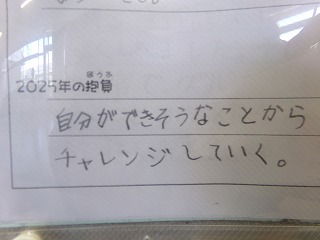 2025年の抱負
ほうふ
自分ができそうなことから
チャレンジしていく。